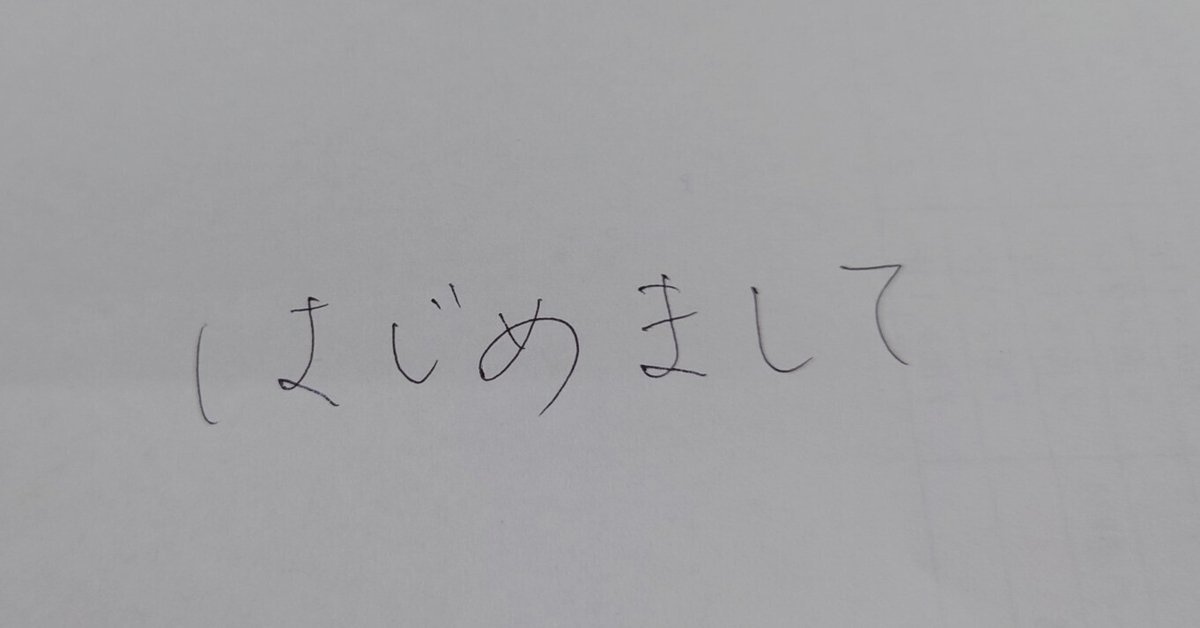 はじめまして